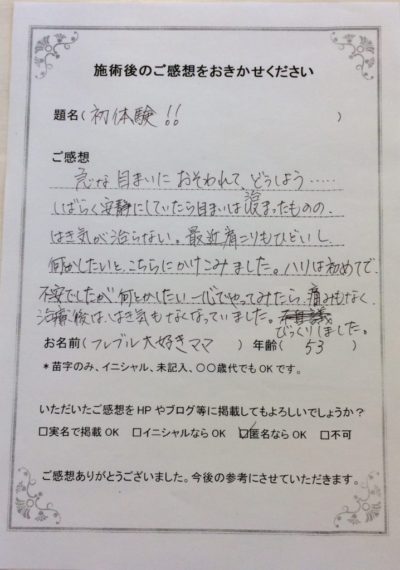 施術後のご感想をおきかせください
題名(初体験!!)
ご感想
急な目まいにおそわれて、どうしよう……
しばらく安静にしていたら目まいは治まったものの、
はき気が治らない。最近肩こりもひどいし、
何とかしたいと、こちらにかけこみました。ハリは初めてで、
不安でしたが何とかしたい一心でやってみたら、痛みもなく、
治療後は、はき気もなくなっていました。
びっくりしました。
お名前(フレブル大好きママ)年齢(53)
*苗字のみ、イニシャル、未記入、○○歳代でもOKです。
いただいたご感想をHPやブログ等に掲載してもよろしいでしょうか?
□実名で掲載OK □イニシャルならOK ☑匿名ならOK □不可
ご感想ありがとうございました。今後の参考にさせていただきます。